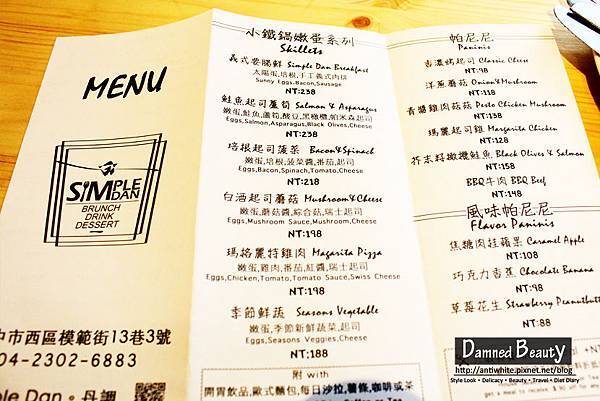 MENU
SiMPLE
DAN
BRUNCH
DRINK
DESSERT
中市西區模範街13巷3號
04-2302-6883
ple Dan。丹調
小鐵鍋嫩蛋系列
Skillets
Simple Dan Breakfast
太陽蛋,培根,手工義式肉腸
Sunny Eggs,Bacon,Sausage
NT:238
鮭魚起司蘆筍 Salmon & Asparagus
嫩蛋,鮭魚,蘆筍,酸豆,黑橄欖,帕米森起司
Eggs,Salmon,Asparagus,Black Olives,Cheese
NT:238
培根起司菠菜 Bacon&Spinach
嫩蛋,培根,菠菜醬,番茄,起司
Eggs,Bacon,Spinach,Tomato,Cheese
NT:218
白酒起司蘑菇 Mushroom&Cheese
嫩蛋,蘑菇醬,綜合菇,瑞士起司
Eggs,Mushroom Sauce,Mushroom,Cheese
NT:198
瑪格麗特雞肉 Magarita Pizza
嫩蛋,雞肉,番茄,紅醬,瑞士起司
Eggs,Chicken,Tomato,Tomato Sauce,Swiss Cheese
NT:198
季節鮮蔬 Seasons Vegetable
嫩蛋,季節新鮮蔬菜,起司
Eggs,Seasons Veggies,Cheese
NT:188
附 with
開胃飲品,歐式麵包,每日沙拉,薯條,咖啡或茶
帕尼尼
Paninis
香濃烤起司 Classic Cheese
NT:98
洋蔥蘑菇 Onion&Mushroom
NT:118
青醬雞肉菇菇 Pesto Chicken Mushroom
NT:138
瑪麗起司雞 Margarita Chicken
NT:128
芥末籽橄欖鮭魚 Black Olives & Salmon
NT:158
BBQ牛肉 BBQ Beef
NT:148
風味帕尼尼
Flavor Paninis
焦糖肉桂蘋果 Caramel Apple
NT:108
巧克力香蕉 Chocolate Banana
NT:98
草莓花生 Strawberry Peanutbutt
NT:88
Damned Beauty
http://antiwhite.pixnet.net/blog
Style Look • Delicacy • Beauty • Travel • Diet Diary